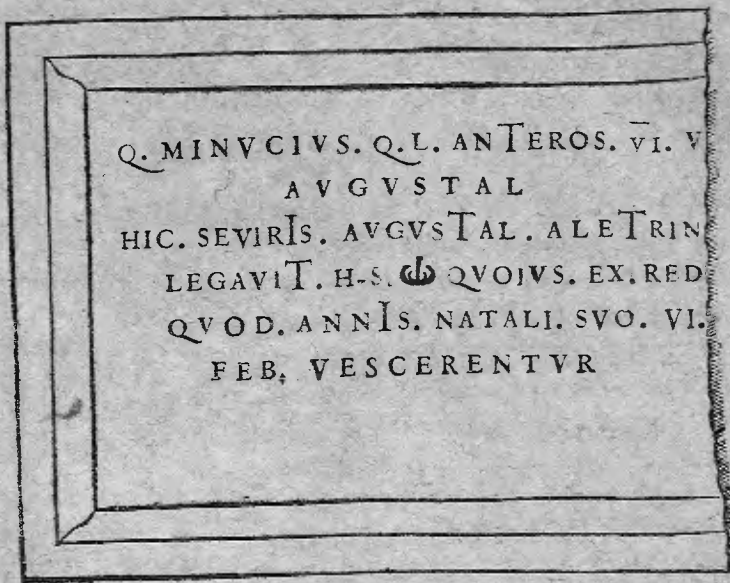 Q. MINVCIVS. Q. L. ANTEROS. V̅I. V
AVGVSTAL
HIC. SEVIRIS. AVGVSTAL. ALETRIN
LEGAVIT. H-S. ↀ QVOIVS. EX. RED
QVOD. ANNIS. NATALI. SVO. VI.
FEB. VESCERENTVR